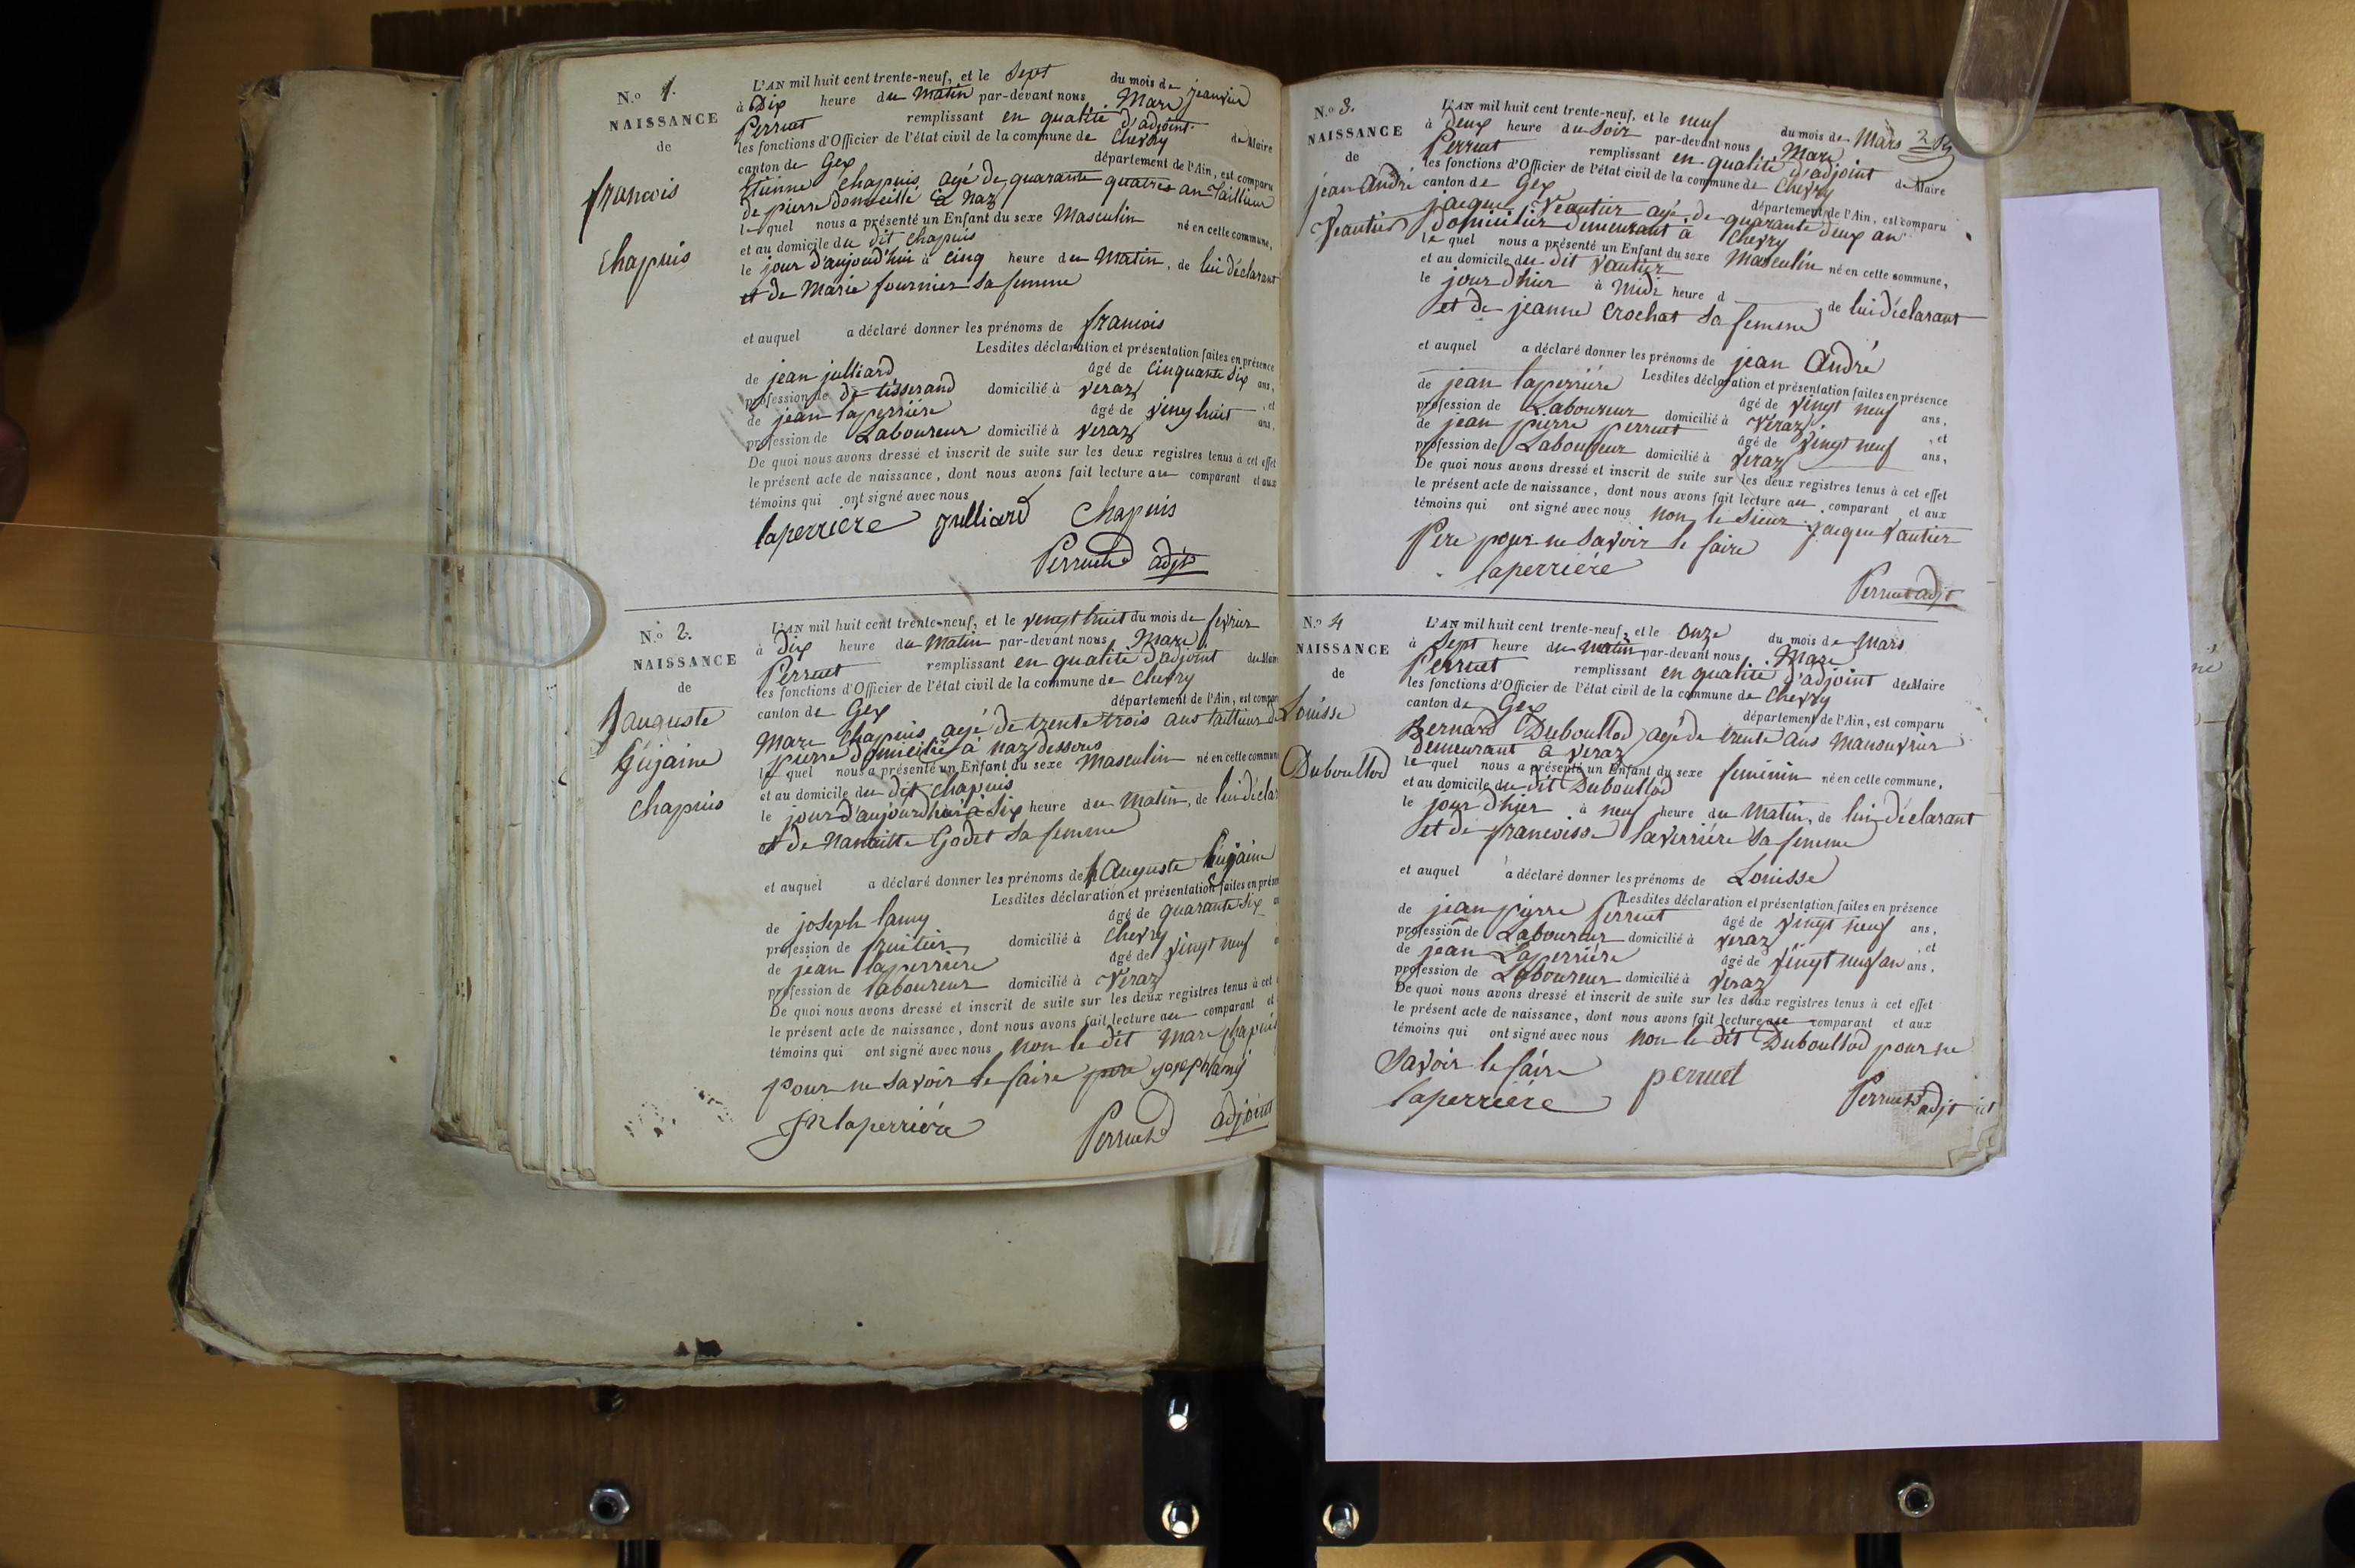 N.o 1.
NAISSANCE
de
francois
Chapuis
L'AN mil huit cent trente-neuf, et le Sept du mois de janvier
à Dix heure du Matin par-devant nous, Marc
Perruet remplissant en qualité d'adjoint de Maire
les fonctions d'Officier de l'état civil de la commune de Chevry
canton de Gex département de l'Ain, est comparu
Etienne Chapuis, agé de quarante quatres an Tailleur
de pierre domicillé à Naz
lequel nous a présenté un Enfant du sexe Masculin né en cette commune,
et au domicile du dit Chapuis
le jour d'aujourd'hui à cinq heure du Matin, de lui déclarant
et de Marie fournier sa femme
et auquel a déclaré donner les prénoms de francois
Lesdites déclaration et présentation faites en présence
de jean julliard âgé de Cinquante six ans,
profession de de tisserand domicilié à veraz , et
de jean laperriére âgé de vingt huit ans,
profession de Laboureur domicilié à veraz
De quoi nous avons dressé et inscrit de suite sur les deux registres tenus à cet effet
le présent acte de naissance, dont nous avons fait lecture au comparant et aux
témoins qui ont signé avec nous
laperriére julliard Chapuis
Perruet adjt
N.o 2.
NAISSANCE
de
auguste
Chapuis
L'AN mil huit cent trente-neuf, et le vingt huit du mois de fevrier
à Dix heure du Matin par-devant nous, Marc
Perruet remplissant en qualité d'adjoint du Maire
les fonctions d'Officier de l'état civil de la commune de Chevry
canton de Gex département de l'Ain, est comparu
Marc Chapuis agé de trente trois ans tailleur de
pierre domicilié à naz dessous
lequel nous a présenté un Enfant du sexe Masculin né en cette commune
et au domicile du dit Chapuis
le jour d'aujourdhui à Six heure du Matin, de lui déclar
et de Godet sa femme
et auquel a déclaré donner les prénoms de Auguste
Lesdites déclaration et présentation faites en présen
de joseph lamy âgé de quarante six
profession de fruitier domicilié à Chevry
de jean laperriére âgé de vingt neuf
profession de laboureur domicilié à Veraz
De quoi nous avons dressé et inscrit de suite sur les deux registres tenus à cet
le présent acte de naissance, dont nous avons fait lecture au comparant et
témoins qui ont signé avec nous non le dit Marc Chapuis
pour ne savoir le faire joseph lamy
laperriére Perruet adjoint
N.o 3.
NAISSANCE
de
jean André
Veautier
L'AN mil huit cent trente-neuf, et le neuf du mois de Mars
à deux heure du Soir par-devant nous Marc
Perruet remplissant en qualité d'adjoint de Maire
les fonctions d'Officier de l'état civil de la commune de Chevry
canton de Gex département de l'Ain, est comparu
jacque Veautier agé de quarante deux an
domicilier demeurant à Chevry
lequel nous a présenté un Enfant du sexe Masculin né en cette commune,
et au domicile du dit Vautier
le jour d'hier à Midi heure d de lui déclarant
et de jeanne Crochat sa femme
et auquel a déclaré donner les prénoms de jean André
Lesdites déclaration et présentation faites en présence
de jean laperriére âgé de vingt neuf ans,
profession de Laboureur domicilié à Veraz , et
de jean pierre perruet âgé de vingt neuf ans,
profession de Laboureur domicilié à veraz
De quoi nous avons dressé et inscrit de suite sur les deux registres tenus à cet effet
le présent acte de naissance, dont nous avons fait lecture au comparant et aux
témoins qui ont signé avec nous non le sieur jacque Vautier
Pere pour ne savoir le faire
laperriére
Perruet adjt
N.o 4
NAISSANCE
de
Louisse
Duboullod
L'AN mil huit cent trente-neuf, et le Onze du mois de Mars
à Sept heure du matin par-devant nous, Marc
Perruet remplissant en qualité d'adjoint de Maire
les fonctions d'Officier de l'état civil de la commune de Chevry
canton de Gex département de l'Ain, est comparu
Bernard Duboullod agé de trente ans Manouvrier
demeurant à Veraz
lequel nous a présenté un Enfant du sexe feminin né en cette commune,
et au domicile du dit Duboullod
le jour d'hier à neuf heure du Matin, de lui déclarant
et de francoisse laverriére sa femme
et auquel a déclaré donner les prénoms de Louisse
Lesdites déclaration et présentation faites en présence
de jean pierre perruet âgé de vingt neuf ans,
profession de Laboureur domicilié à veraz , et
de jean Laperriére âgé de vingt neuf an ans,
profession de Laboureur domicilié à veraz
De quoi nous avons dressé et inscrit de suite sur les deux registres tenus à cet effet
le présent acte de naissance, dont nous avons fait lecture au comparant et aux
témoins qui ont signé avec nous non le dit Duboullod pour ne
savoir le faire perruet
laperriére Perruet adjt